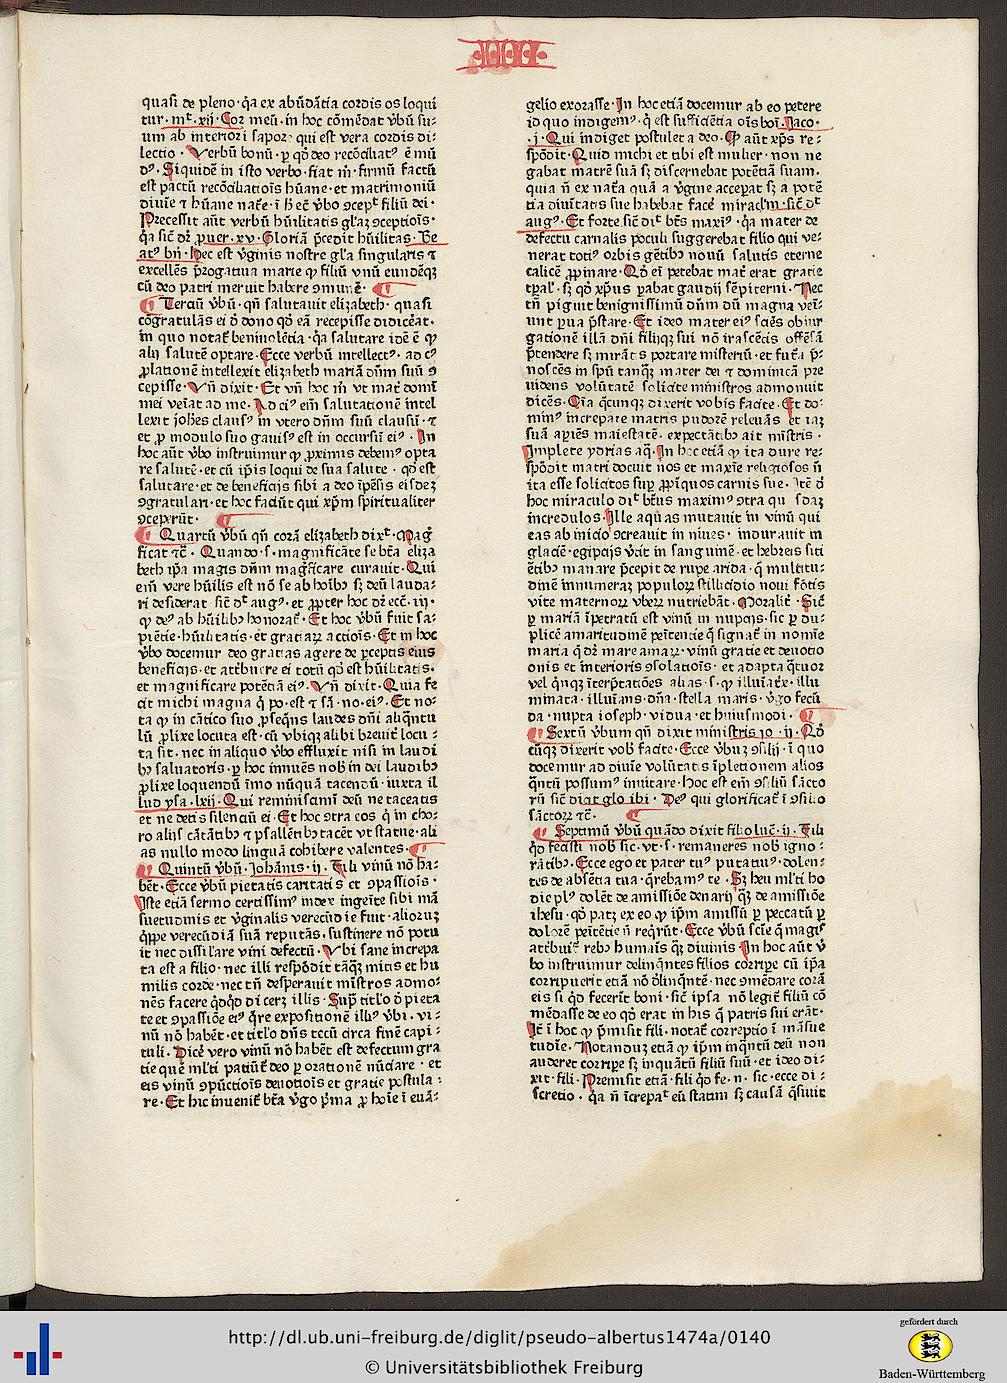 quasi de pleno · q̄a ex abūdātia cordis os loqui
tur . mt̄ . xij . Cor meū . in hoc cōmēdat᷑ v̄bū su⸗
um ab interiori sapore qui est vera cordis di⸗
lectio . Verbū bonū . ꝑ qd̄ deo recōciliatꝰ ē mū
dꝰ . Siquidē in isto verbo . fiat m̄ . firmū factū
est pactū recōciliatiōis hūane . et matrimoniū
diuīe ⁊ hūane nat̄e . ī h̄ ec̄ v̄bo ꝯcept̄ filiū dei .
Precessit aūt verbū hūilitatis gl̄aꝫ ꝯceptiōis .
q̄a sic̄ dr̄ ꝓuer . xv . Gloriā p̄cedit hūilitas . Be
atꝰ bn̄ . Hec est v̄ginis nostre gl̄a singularis ⁊
excellēs p̄rogatiua marie ꝙ filiū vnū eundēqꝫ
cū deo patri meruit habere ꝯmunē .
Terciū v̄bū . qn̄ salutauit elizabeth . quasi
cōgratulās ei d̄ dono qd̄ eā recepisse didicerat .
in quo notat᷑ beniuolētia . q̄a salutare idē ē ꝙ
alij salutē optare . Ecce verbū intellectꝰ . ad cꝰ
ꝓlationē intellexit elizabeth mariā dn̄m suū ꝯ
cepisse . Vn̄ dixit . Et vn̄ hoc m̄ vt mat̄ domī
mei veīat ad me . Ad ciꝰ em̄ salutationē intel
lexit joh̄es clausꝰ in vtero dn̄m suū clausū . ⁊
et ꝓ modulo suo gauisꝰ est in occursū eiꝰ . In
hoc aūt v̄bo instruimur ꝙ ꝓximis debemꝰ opta
re salutē . et cū ip̄is loqui de sua salute . qd̄ est
salutare . et de beneficijs sibi a deo īpēsis eisdeꝫ
ꝯgratulari . et hoc faciūt qui xp̄m spiritualiter
ꝯceperūt .
Quartū v̄bū qn̄ corā elizabeth dixt̄ . Maḡ
ficat ⁊c̄ . Quando . s . magnificāte se bt̄a eliza
beth ip̄a magis dn̄m maḡficare curauit . Qui
em̄ vere hūilis est nō se ab hoībꝫ sꝫ deū lauda⸗
ri desiderat sic̄ dt̄ augꝰ . et ꝓpter hoc dr̄ ecc̄ . iij .
ꝙ deꝰ ab hūilibꝫ honorat᷑ . Et hoc v̄bū fuit sa⸗
piētie . hūilitatis . et gratiaꝝ actiōis . Et in hoc
v̄bo docemur deo gratias agere de ꝑceptis eius
beneficijs . et attribuere ei totū qd̄ est hūilitatis .
et magnificare potētiā eiꝰ . Vn̄ dixit . Quia fe
cit michi magna q̄ po . est ⁊ sā . no . eiꝰ . Et no⸗
ta ꝙ in cātico suo ꝓseqn̄s laudes dn̄i aliq̄ntu
lū ꝓlixe locuta est . cū vbiqꝫ alibi breuit᷑ locu ⸗
ta sit . nec in aliquo v̄bo effluxit nisi in laudi
bꝫ saluatoris . ꝑ hoc innuēs nob̄ in dei laudibꝫ
ꝓlixe loquendū īmo nūquā tacendū . iuxta il
lud ysa . lxij . Qui reminiscimī deū ne taceatis
et ne detis silenciū ei . Et hoc ꝯtra eos q̄ in cho⸗
ro alijs cātātibꝫ ⁊ psallētibꝫ tacēt vt statue . ali
as nullo modo linguā cohibere valentes .
Quintū v̄bū . Johānis . ij . Fili vinū nō ha⸗
bēt . Ecce v̄bū pietatis caritatis et ꝯpassiōis .
Iste etiā sermo certissimꝰ index ingeīte sibi mā
suetudinis et v̄ginalis verecūdie fuit . aliorūꝫ
q̄ppe verecūdiā suā reputās . sustinere nō potu
it nec dissil̄are vini defectū . Vbi sane increpa
ta est a filio . nec illi respōdit tāqꝫ mitis et hu
milis corde . nec tn̄ desperauit mīstros admo⸗
nēs facere q̄dq̄d diceꝫ illis . Suꝑ titl̄o d̄ pieta
te et ꝯpassiōe eiꝰ q̄re expositionē illiꝰ v̄bi . vi⸗
nū nō habēt . et titl̄o dn̄s tecū circa finē capi⸗
tuli . Dicē vero vinū nō habēt est defectum gra
tie quē ml̄ti patiūt᷑ deo ꝑ orationē nūciare . et
eis vinū ꝯpūctiōis deuotiōis et gratie postula⸗
re . Et hic inuenit᷑ bt̄a v̄go p̄ma ꝓ hoīe ī euā⸗
gelio exorasse . In hoc etiā docemur ab eo petere
id quo indigemꝰ . q̄ est sufficiētia oīs boī . Jaco .
. j . Qui indiget postulet a deo . Ꝙ aūt xp̄s re⸗
spōdit . Quid michi et tibi est mulier . non ne
gabat matrē suā sꝫ discernebat potētiā suam .
quia n̄ ex nat̄a quā a v̄gine acceꝑat sꝫ a potē
tia diuītatis sue habebat facē miracl̄m . sic̄ dt̄
augꝰ . Et forte sic̄ dit̄ bt̄s maxīꝰ . q̄a mater de
defectu carnalis poculi suggerebat filio qui ve⸗
nerat totiꝰ orbis gētibꝫ nouū salutis eterne
calicē ꝓpinare . Qd̄ ei petebat mat̄ erat gratie
tꝑal̄ . sꝫ qd̄ xp̄us ꝑabat gaudij sēpiterni . Nec
tn̄ piguit benignissimū dn̄m dū magna veī⸗
unt ꝑua p̄stare . Et ideo mater eiꝰ sciēs obiur
gationē illā dn̄i filijqꝫ sui nō irascētis offēsā
p̄tendere sꝫ mirātis portare misteriū . et fut̄a p̄⸗
noscēs in sp̄u tanqꝫ mater dei ⁊ dominicā pre
uidens volūtatē solicite ministros admonuit
dicēs . Qīa q̄cunqꝫ dixerit vobis facite . Et do⸗
minꝰ increpare matris pudorē releuās et iaꝫ
suā aꝑiēs maiestatē . expectātibꝫ ait mīstris .
Implete ydrias aq̄ . In hoc etiā ꝙ ita dure re⸗
spōdit matri docuit nos et maxīe religiosos n̄
ita esse solicitos suꝑ ꝓpīquos carnis sue . Itē d̄
hoc miraculo dit̄ bt̄us maximꝰ ꝯtra qu sdaꝫ
incredulos . Ille aquas mutauit in vinū qui
eas ab inicio ꝯcreauit in niues . indurauit in
glaciē . egipcijs v̄tit in sanguinē . et hebreis siti
ētibꝫ manare p̄cepit de rupe arida . q̄ multitu⸗
dinē innumeraꝫ populoꝝ stillicidio noui fōtis
vite maternoꝝ vbeꝝ nutriebāt . Moralit᷑ . Sic̄
ꝑ mariā īpetratū est vinū in nupcijs . sic ꝑ du⸗
plicē amaritudinē peītentie q̄ signat᷑ in nomīe
maria q̄ dr̄ mare amaꝝ . vinū gratie et deuotio
onis et interioris ꝯsolatiōis . et adapta q̄tuor
vel q̄nqꝫ īterp̄tatiōes alias . s . ꝙ illuīat᷑x . illu
minata . illuīans . dn̄a . stella maris . v̄go fecū
da . nupta ioseph . vidua . et huiusmodi .
Sextū v̄bum qn̄ dixit ministris io . ij . Qd̄
cūqꝫ dixerit vob̄ facite . Ecce v̄buꝫ ꝯsilij . ī quo
docemur ad diuīe volūtatis īpletionem alios
q̄ntū possumꝰ inuitare . Hoc est em̄ ꝯsiliū sācto
rū sic̄ dicit glo ibi . Deꝰ qui glorificat᷑ ī ꝯsilio
sāctoꝝ ⁊c̄ .
Septimū v̄bū quādo dixit filio luc̄ . ij . Fili
q̄d fecisti nob̄ sic . vt . s . remaneres nob̄ igno⸗
rātibꝫ . Ecce ego et pater tuꝰ putatiuꝰ . dolen⸗
tes de absētia tua . q̄rebamꝰ te . Sꝫ heu ml̄ti ho
die plꝰ dolēt de amissiōe denarij q̄ꝫ de amissiōe
ihesu . qd̄ patꝫ ex eo ꝙ ip̄m amissū ꝑ peccatū ꝑ
dolorē peītētie n̄ req̄rūt . Ecce v̄bū scīe q̄ magiſ
attribuit᷑ rebꝫ humaīs q̄ꝫ diuinis . In hoc aūt v̄
bo instruimur delinq̄ntes filios corripe cū ip̄a
corripuerit etiā nō d̄linq̄ntē . nec ꝯmēdare corā
eis si q̄d fecerīt boni . sic̄ ipsa nō legit᷑ filiū cō
mēdasse de eo qd̄ erat in his q̄ patris sui erāt .
It̄ ī hoc ꝙ p̄misit fili . notat᷑ correptio ī māsue
tudīe . Notanduꝫ etiā ꝙ ip̄m inq̄ntū deū non
auderet corripe sꝫ inquātū filiū suū . et ideo di⸗
xit . fili . Premisit etiā . fili q̄d fe . n . sic . ecce di ⸗
scretio . q̄a n̄ īcrepat̄ eū statim sꝫ causā q̄siuit
http://dl.ub.uni-freiburg.de/diglit/pseudo-albertus1474a/0140
© Universitätsbibliothek Freiburg
gefördert durch
Baden-Württemberg